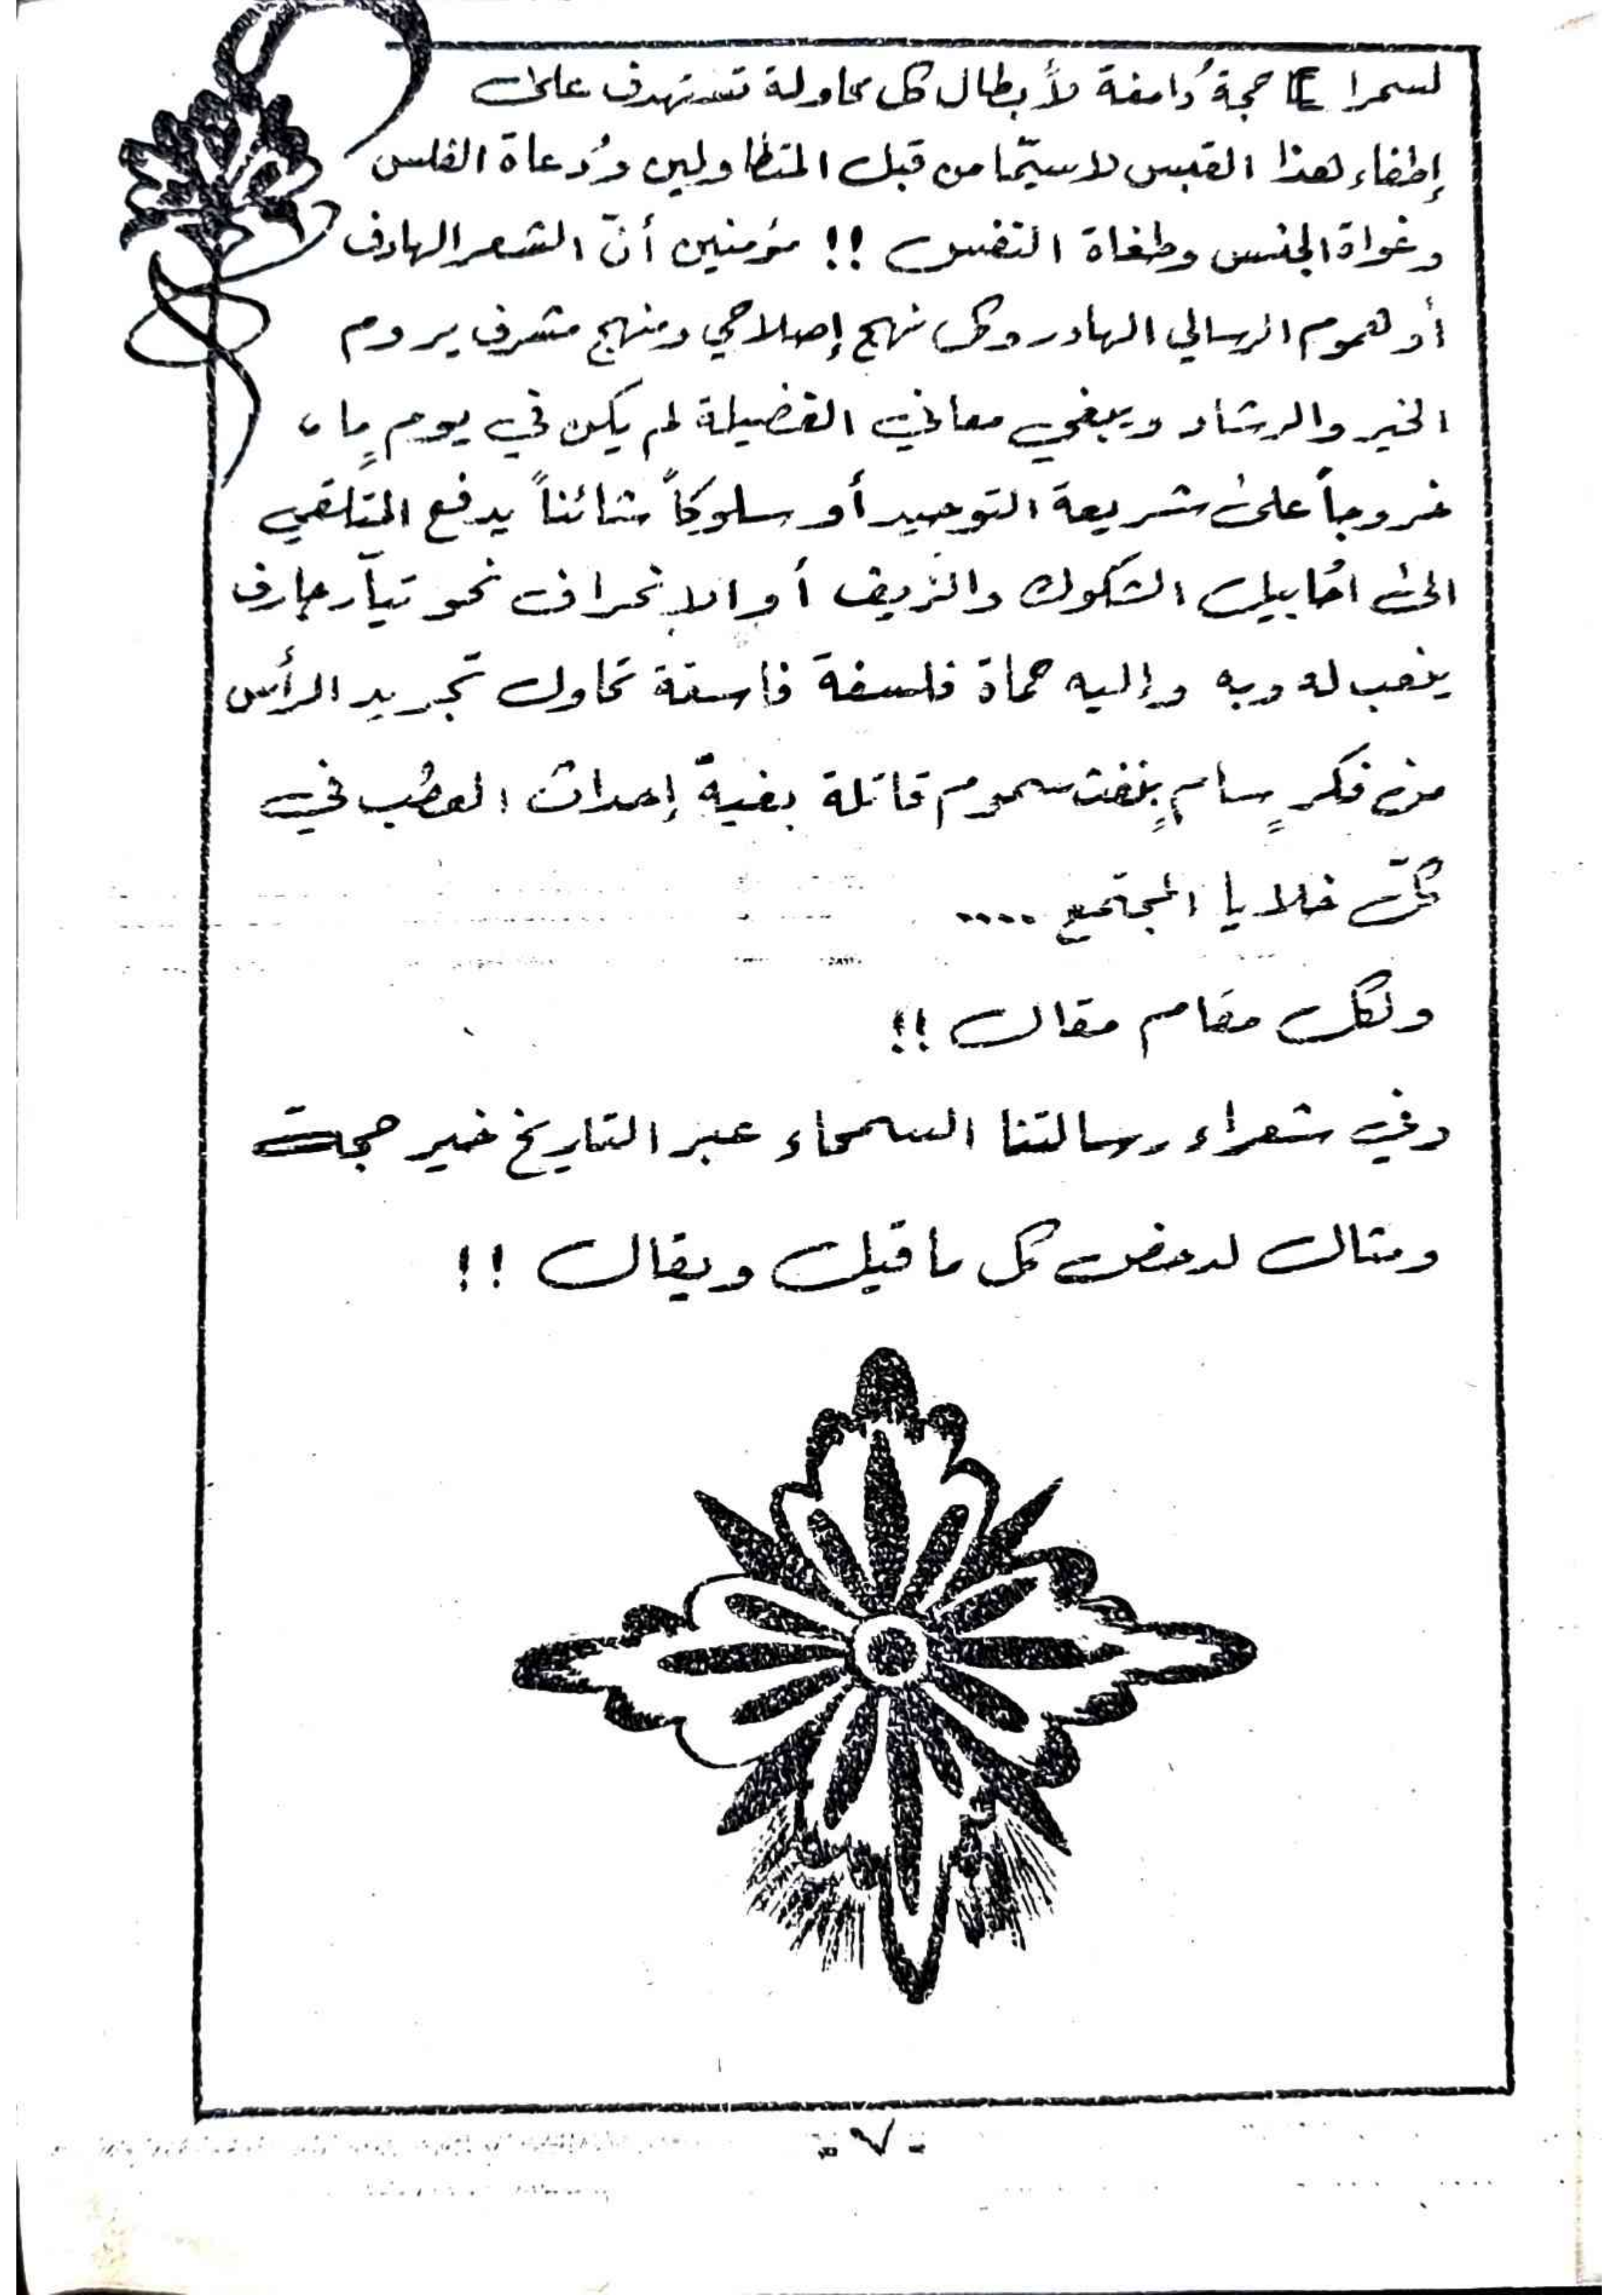 لسمراء حجةُ دامغة لأبطال كل محاولة تستهدف علىٰ
إطفاء هذا القبس لاسيّما من قبل المتطاولين ودُعاة الفلس
وغواة الجنس وطغاة النفس !! مؤمنين أنّ الشعر الهادف
أو هموم الرسالي الهادر وكل نهج إصلاحي ومنهج مشرف يروم
الخير والرشاد ويبغي معاني الفضيلة لم يكن في يومٍ ما ،
خروجاً علىٰ شريعة التوحيد أو سلوكاً شائناً يدفع المتلقي
الىٰ احُابيل الشكوك والزيف أو الانحراف نحو تيّار جارف
ينعب له وبه وإليه حماة فلسفة فاسقة تحاول تجريد الرأس
من فكرٍ سامٍ بنفث سموم قاتلة بغية إحداث العطب في
كلّ خلايا المجتمع ....
ولكل مقام مقال !!
وفي شعراء رسالتنا السمحاء عبر التاريخ خير حجة
ومثال لدحض كل ما قيل ويقال !!
- ٧ -